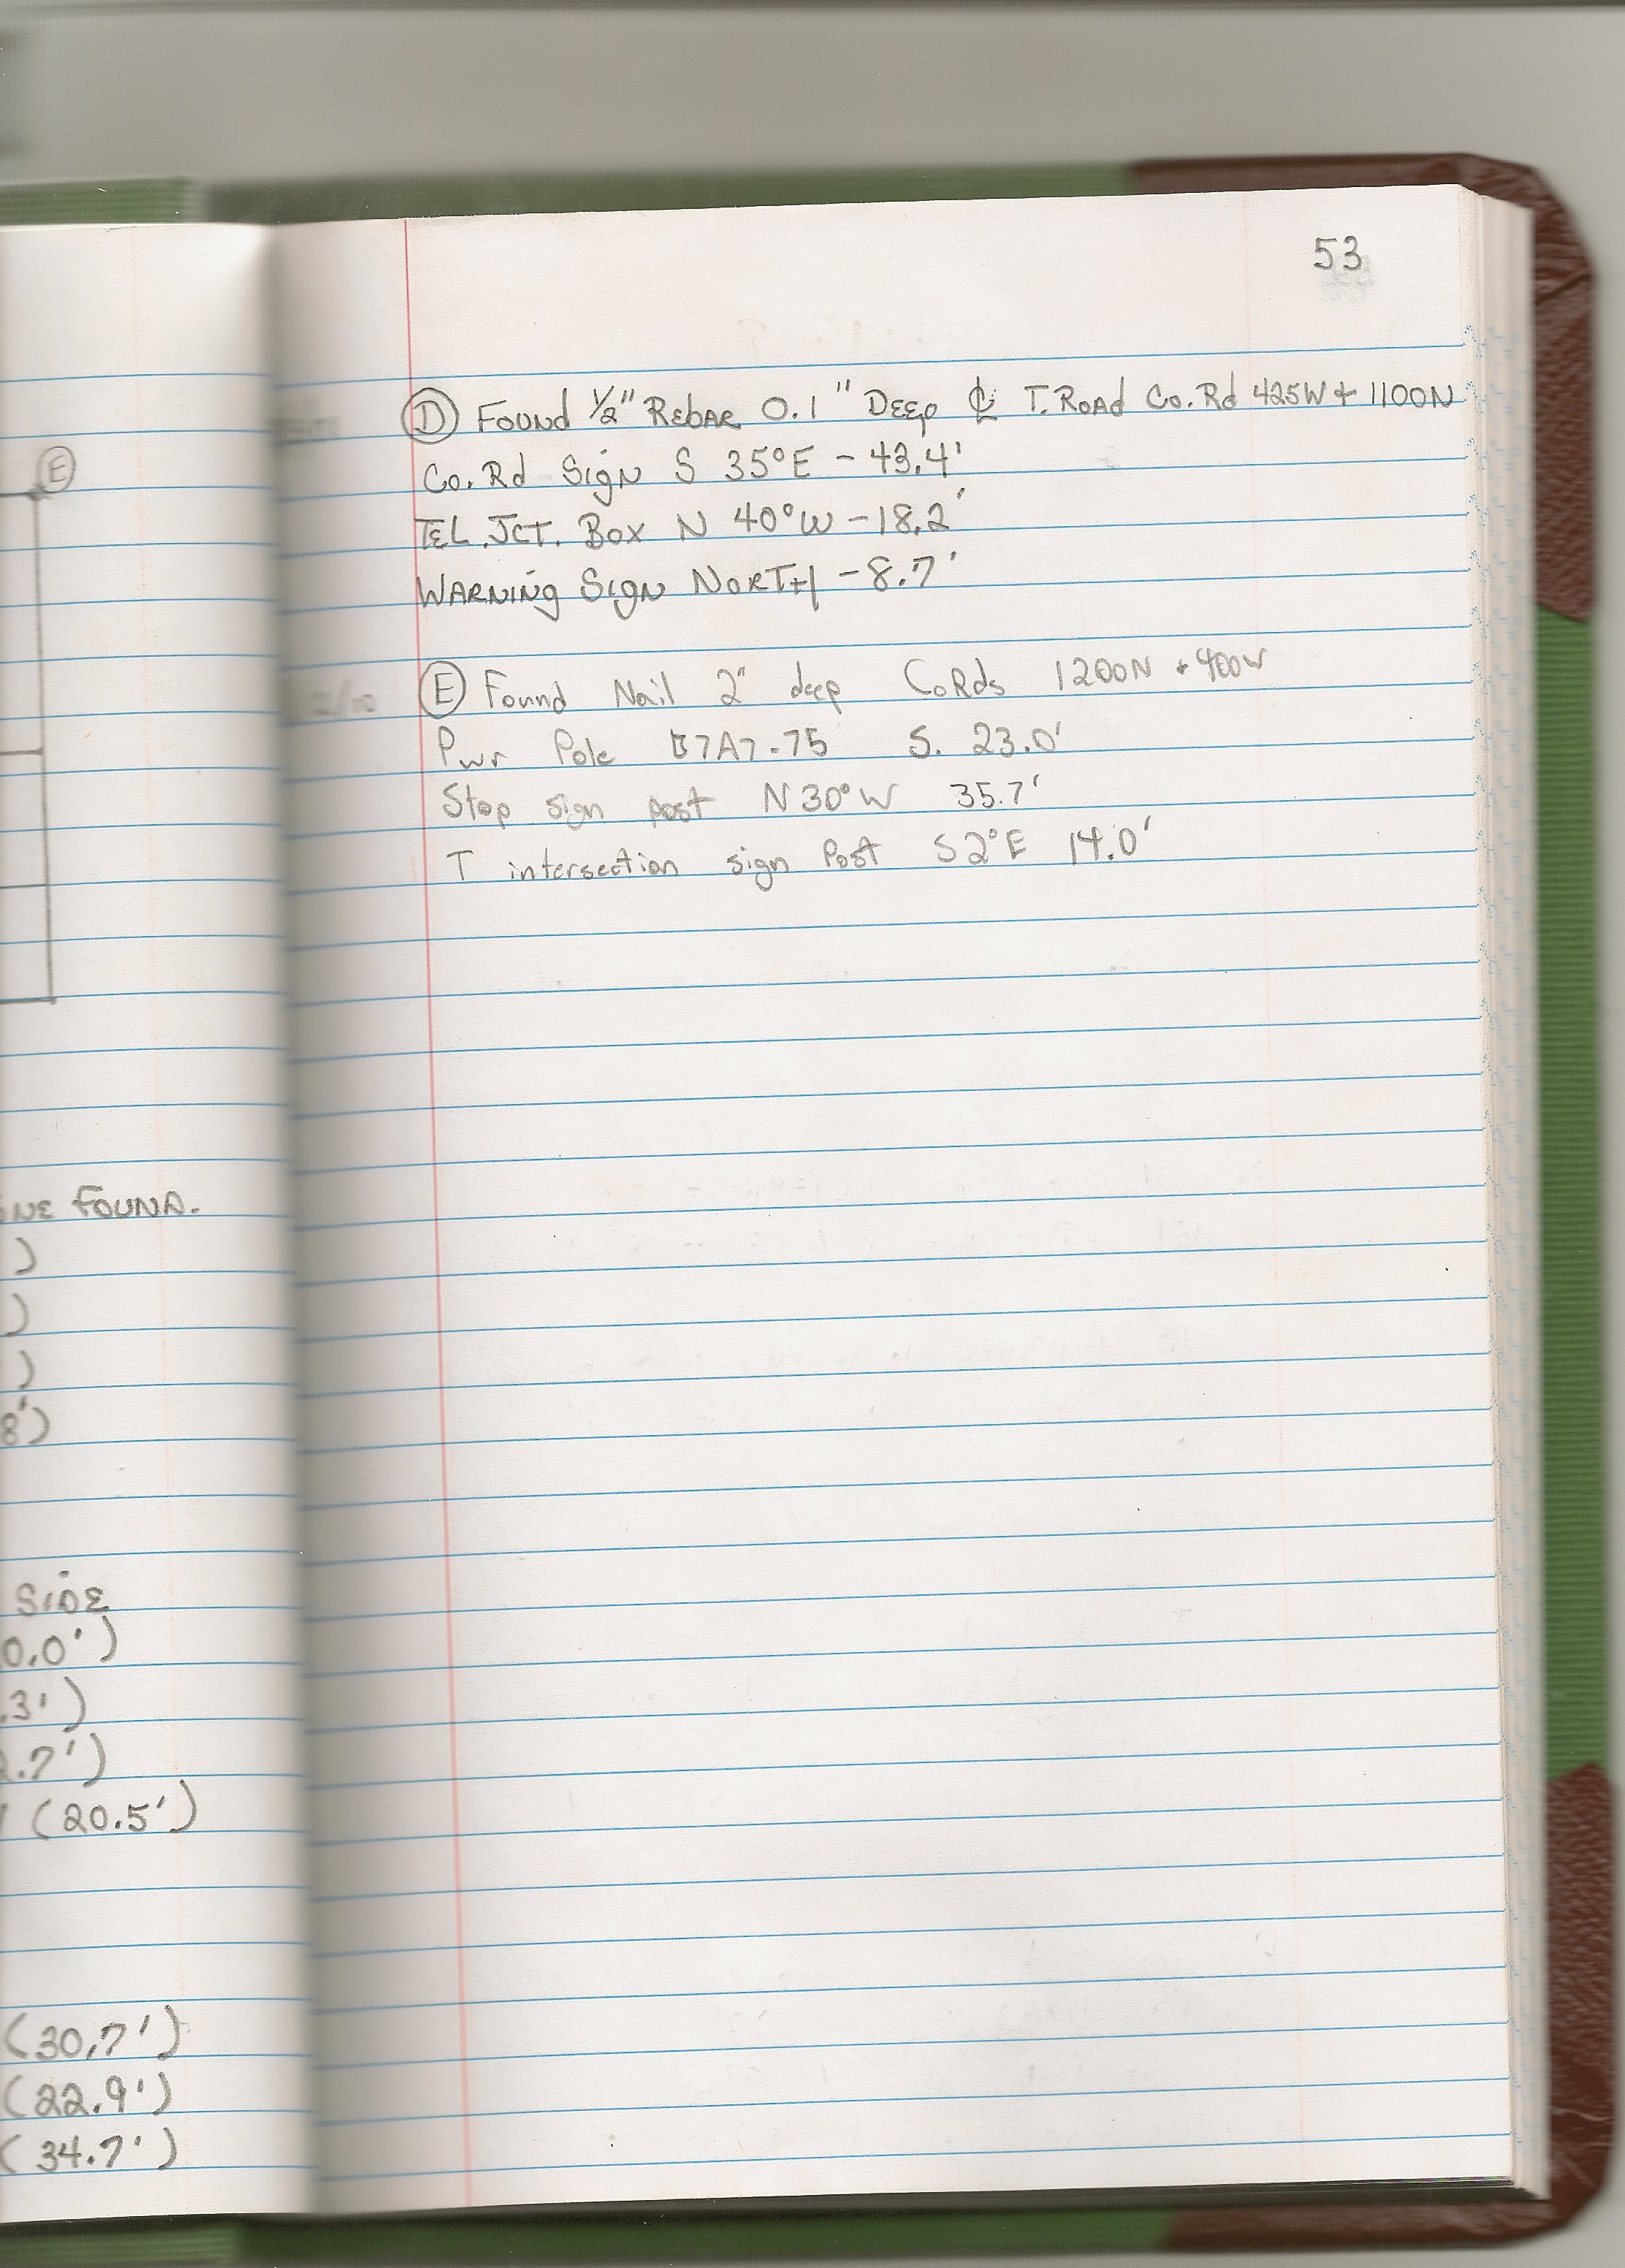 53
Ⓓ Found 1/2" Rebar 0.1" Deep ℄ T. Road Co. Rd 425W + 1100N
Co. Rd Sign S 35°E - 43.4'
TEL. JCT. Box N 40°W - 18.2'
WARNING SIGN NORTH - 8.7'
Ⓔ Found Nail 2" deep CoRds 1200N + 400W
Pwr Pole 7A7-75 S. 23.0'
Stop sign post N30°W 35.7'
T intersection sign Post S2°E 14.0'
Ⓔ
FOUND.
)
)
)
8')
SIDE
0.0')
.3')
.7')
(20.5')
(30.7')
(22.9')
(34.7')